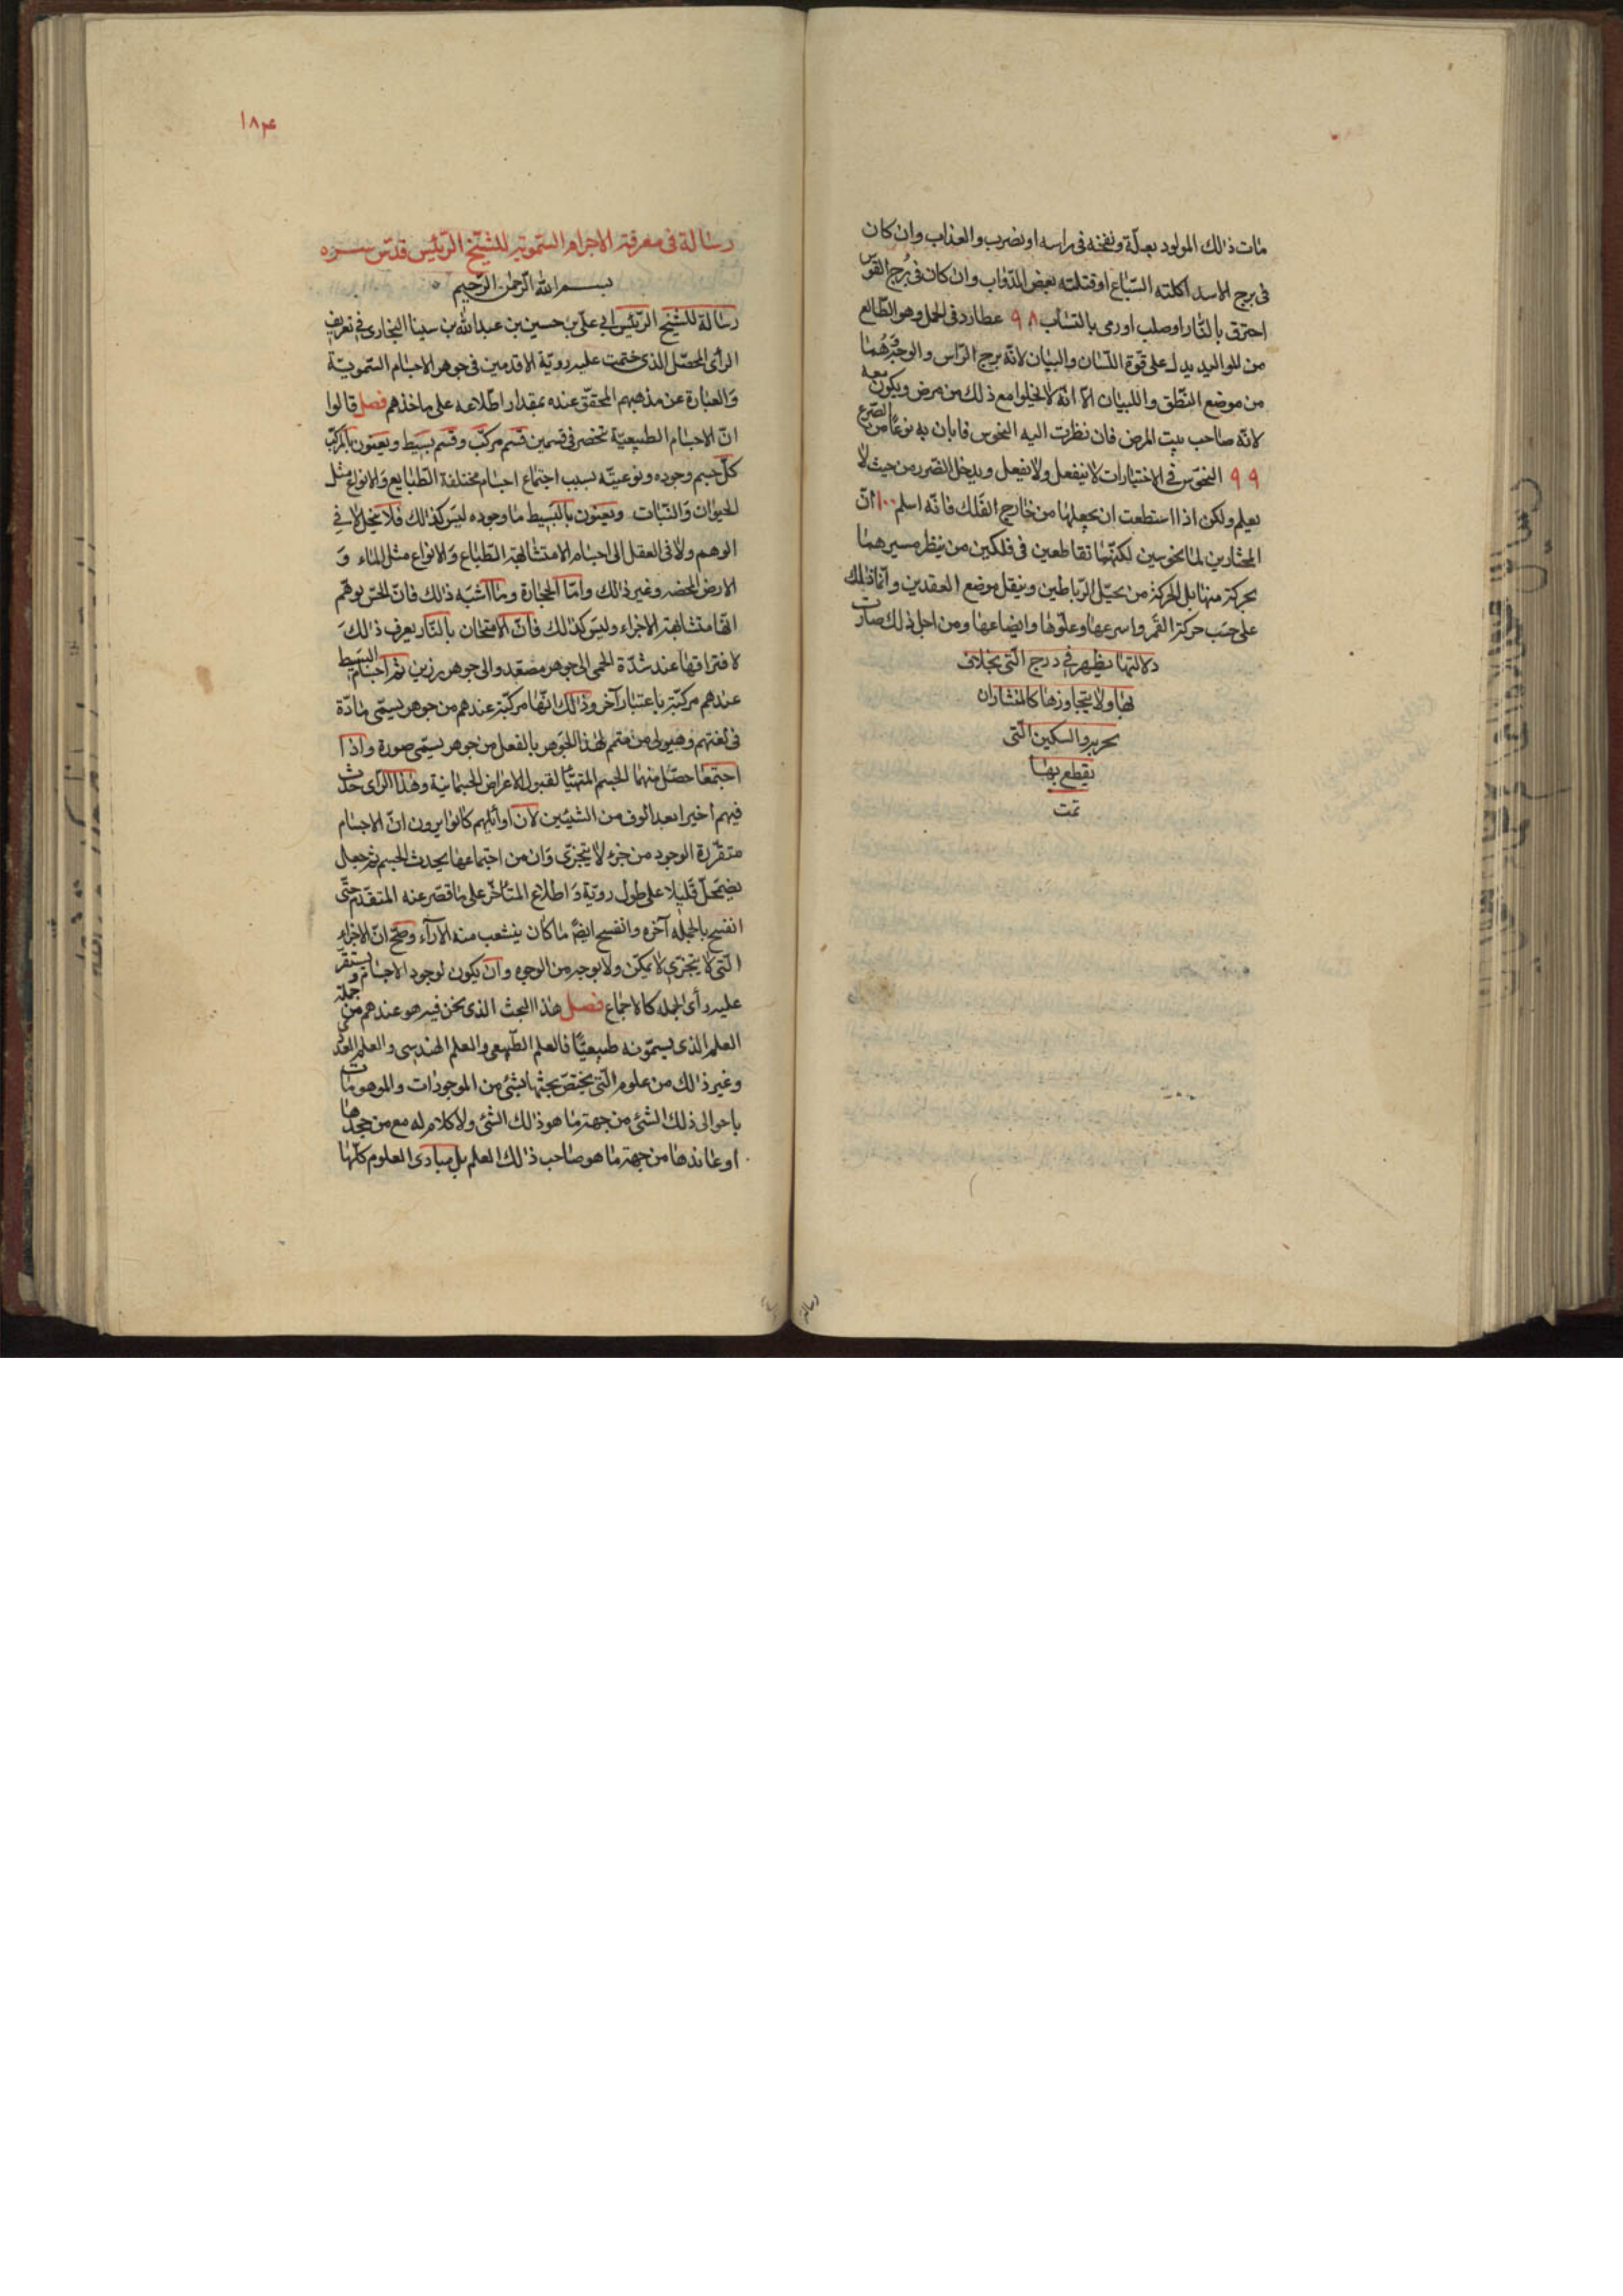 مات ذلك المولود بعلة ونفخة فى راسه او بضرب والعذاب وان كان
فى برج الاسد اكلته السباع او قتلته بعض الدواب وان كان فى برج القوس
احترق بالنار او صلب او رمى بالنشاب ٩٨ عطارد فى الحمل وهو الطالع
من المواليد يدل على قوة اللسان والبيان لانه برج الراس والوجه وهما
من موضع النطق واللبيان الا انه لا يخلوا مع ذلك من مرض ويكون معه
لانه صاحب بيت المرض فان نظرت اليه النحوس فابان به نوعا من الصرع
٩٩ النحوس فى الاختيارات لا ينفعل ولا يفعل ويدخل الضرر من حيث لا
يعلم ولكن اذا استطعت ان تجعلها من خارج الفلك فانه اسلم ١٠٠ ان
المختارين لما نحوسين لكنهما تقاطعين فى فلكين من ينظر مسيرهما
بحركة منها بل الحركة من تحيل الرباطين وينقل موضع العقدين وانما ذلك
على حسب حركة القمر واسرعها وعلوها وايضاعها ومن اجل ذلك صارت
دلالتها يظهر فى درج التى بخلاف
لها ولا يتجاوزها كالمنشاران
بحرير والسكين التى
يقطع بها
تمت
١٨٤
رسالة فى معرفة الاجرام السموية للشيخ الرئيس قدس سره
بسم الله الرحمن الرحيم
رسالة للشيخ الرئيس ابى على بن حسين بن عبد الله بن سينا البخارى فى تعريف
الرأى المحصل الذى ختمت عليه روية الاقدمين فى جوهر الاجسام السموية
والعبارة عن مذهبهم المحقق عنده بمقدار اطلاعه على ماخذهم فصل قالوا
ان الاجسام الطبيعية تنحصر فى قسمين قسم مركب وقسم بسيط ويعنون بالمركب
كل جسم وجوده ونوعيته بسبب اجتماع اجسام مختلفة الطبايع والانواع مثل
الحيوان والنبات ويعنون بالبسيط ما وجوده ليس كذلك فلا ينحل لا فى
الوهم ولا فى العقل الى اجسام الا متشابهة الطباع والانواع مثل الماء و
الارض المحضه وغير ذلك واما الحجارة وما اشبه ذلك فان الحس يوهم
انها متشابهة الاجزاء وليس كذلك فان الامتحان بالنار يعرف ذلك
لافتراقها عند شدة الحمى الى جوهر مصعد والى جوهر رزين ثم اجسام البسيط
عندهم مركبة باعتبار آخر وذلك انها مركبة عندهم من جوهر يسمى مادة
فى لغتهم وهيولى من متمم لهذا الجوهر بالفعل من جوهر يسمى صورة واذا
اجتمعا حصل منهما الجسم المتهيأ لقبول الاعراض الجسمانية وهذا الرأى حدث
فيهم اخيرا بعد الوف من السنين لان اوائلهم كانوا يرون ان الاجسام
متقررة الوجود من جزء لا يتجزى وان من اجتماعها يحدث الجسم ثم جعل
يضمحل قليلا على طول روية واطلاع المتأخر على ما قصر عنه المتقدم حتى
انفسح بالجمله آخره وانفسح ايضا ما كان ينشعب منه الآراء وصح ان الاجزاء
التى لا يتجزى لا يمكن ولا بوجه من الوجوه وان يكون لوجود الاجسام ويستقر
عليه رأى الجمله كالاجماع فصل هذا البحث الذى نحن فيه هو عندهم من جملة
العلم الذى يسمونه طبيعيا فالعلم الطبيعى والعلم الهندسى والعلم العددى
وغير ذلك من علوم التى يختص بحثها بشئ من الموجودات والموهومات
باحوالى ذلك الشئ من جهة ما هو ذلك الشئ ولا كلام له مع من جحدها
او عاندها من جهة ما هو صاحب ذلك العلم بل مبادى العلوم كلها
رسالة